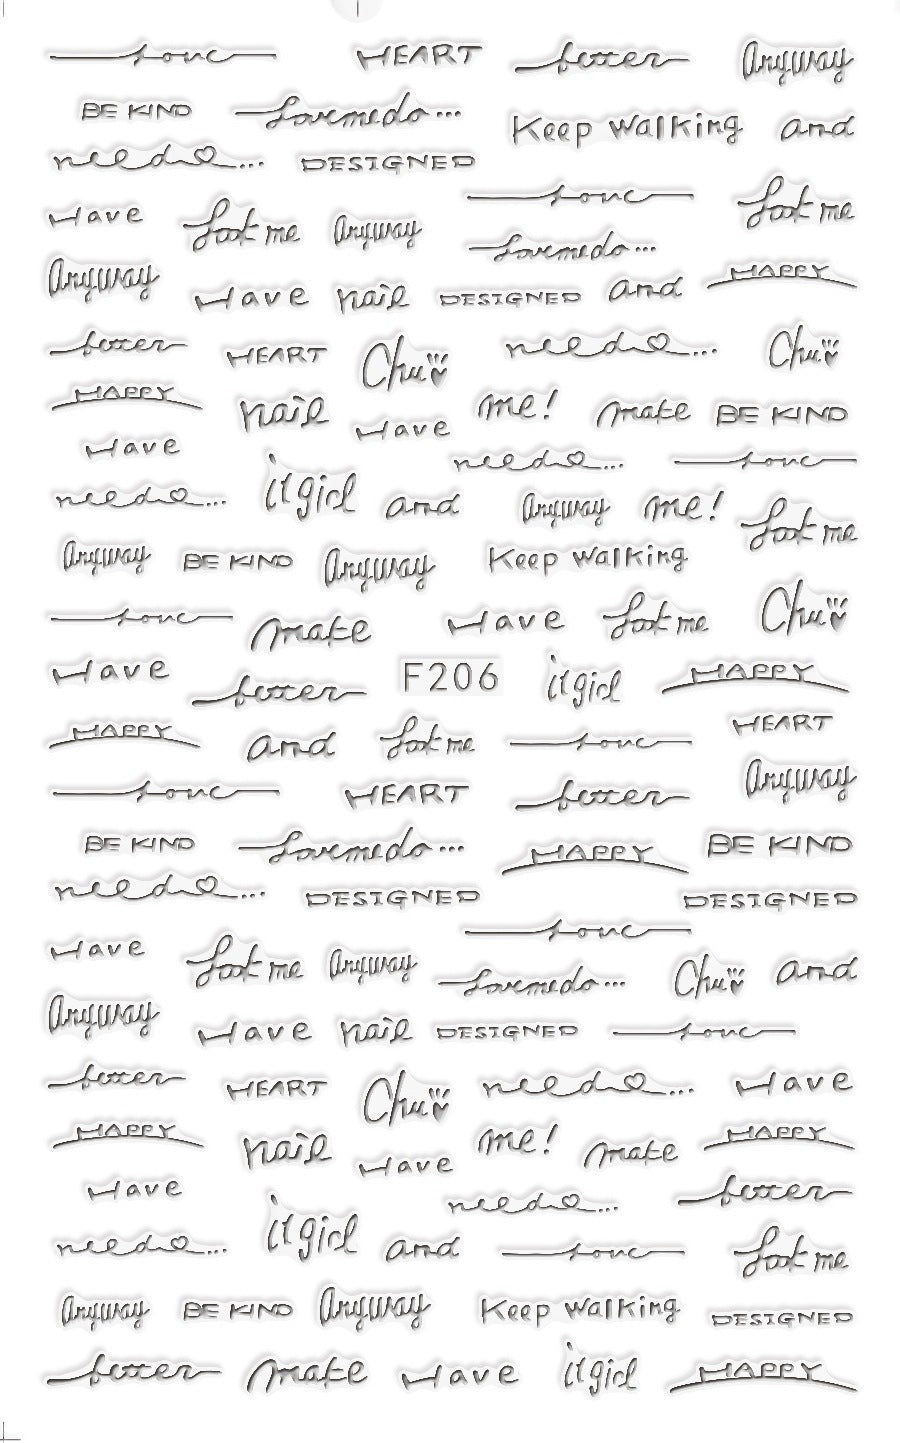 love HEART better Anyway
BE KIND Lovemedo...
Keep walking and
need... DESIGNED
love
Have Look me Anyway Look me
Lovemedo...
Anyway Have nail DESIGNED and HAPPY
better HEART Chu need... Chu
HAPPY nail Have me! make BE KIND
Have need... love
need... it girl and Anyway me! Look me
Anyway BE KIND Anyway Keep walking
love make Have Look me Chu
Have better F206 it girl HAPPY
HAPPY and Look me love HEART
love HEART better Anyway
BE KIND Lovemedo... HAPPY BE KIND
need... DESIGNED DESIGNED
love
Have Look me Anyway Lovemedo... Chu and
Anyway Have nail DESIGNED love
better HEART Chu need... Have
HAPPY nail Have me! make HAPPY
Have need... better
need... it girl and love Look me
Anyway BE KIND Anyway Keep walking DESIGNED
better make Have it girl HAPPY